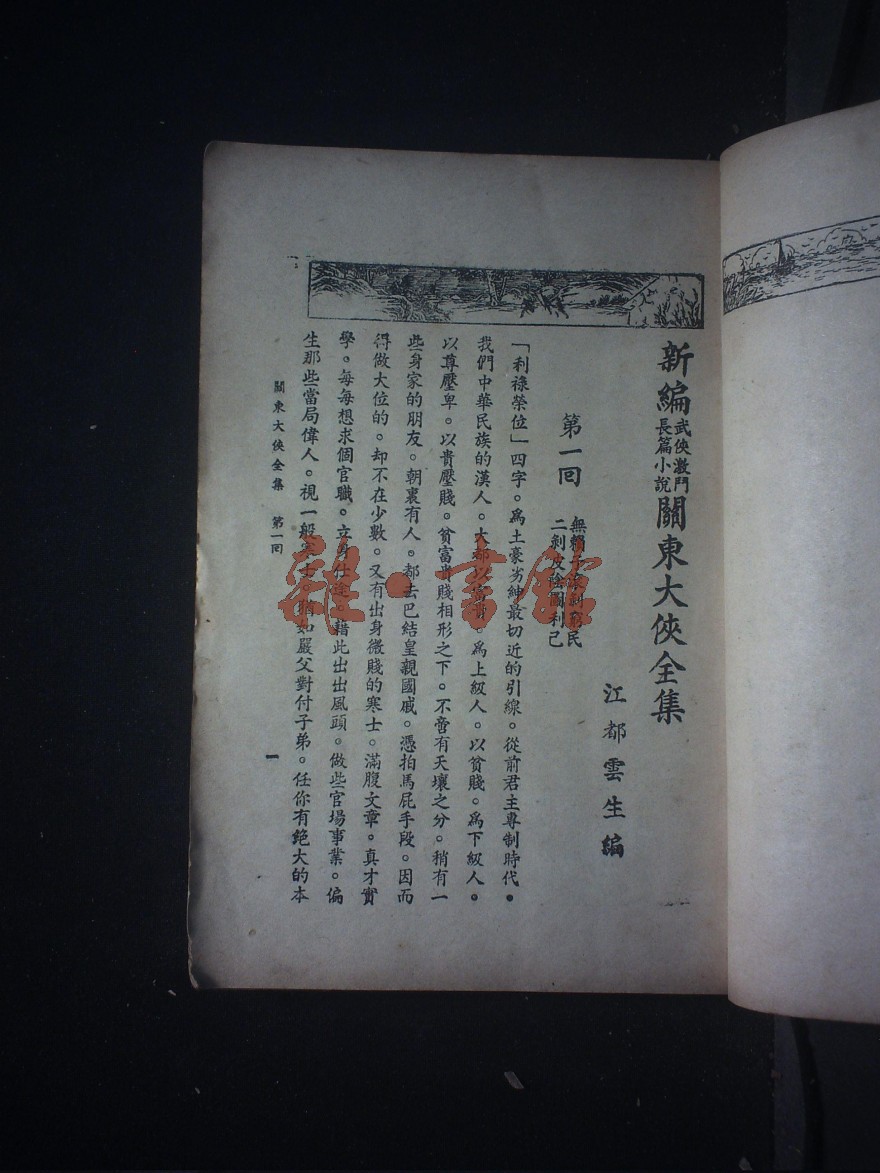 新編武俠激鬥長篇小說關東大俠全集
江都雲生編
第一回
無賴子剝窮民
二剝皮陰圖利己
「利祿榮位」四字。爲土豪劣紳最切近的引線。從前君主專制時代。
我們中華民族的漢人。大都以富貴。爲上級人。以貧賤。爲下級人。
以尊壓卑。以貴壓賤。貧富貴賤相形之下。不啻有天壤之分。稍有一
些身家的朋友。朝裏有人。都去巴結皇親國戚。憑拍馬屁手段。因而
得做大位的。却不在少數。又有出身微賤的寒士。滿腹文章。真才實
學。每每想求個官職。立身仕途。藉此出出風頭。做些官場事業。偏
生那些當局偉人。視一般寒士。猶如嚴父對付子弟。任你有絕大的本
關東大俠全集 第一回
一
雜·書館